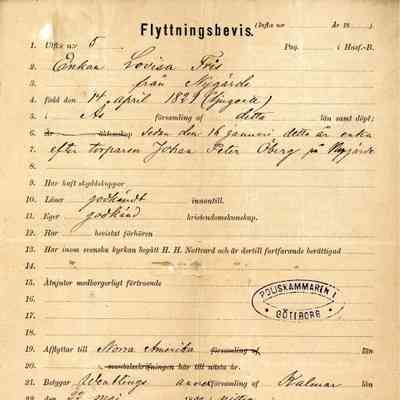 Flyttningsbevis. (Infl:s nr År 18 .)
1. Utfl:s nr 5 Pag. i Husf.-B.
2. Enkan Lovisa Fris
3. från Nygärde
4. född den 14 April 1829 (Ljuged)
5. i As församling af detta län samt döpt;
6. är äktenskap Sedan den 16 januari detta år enka
7. efter torparen Johan Peter Öberg på Nygärde
8.
9. Har haft skyddskoppor
10. Läser godkändt innantill.
11. Eger godkänd kristendomskunskap.
12. Har bevistat förhören
13. Har inom svenska kyrkan begått H. H. Nattvard och är dertill fortfarande berättigad
14. " "
15. Åtnjuter medborgerligt förtroende
16.
17.
18.
POLISKAMMAREN I
GÖTEBORG
19. Afflyttar till Norra Amerika församling af län
20. mantalsskrifningen här till nästa år.
21. Betygar Wentlinge Kalmar län
22. den 22 maj